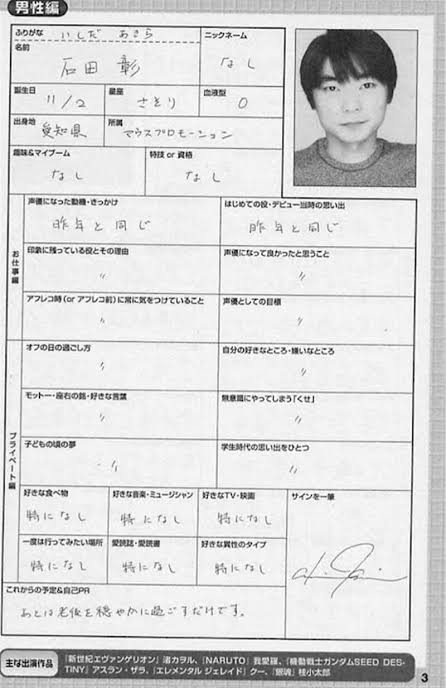 男性編
ふりがな いしだ あきら
名前 石田 彰
ニックネーム なし
誕生日 11/2
星座 さそり
血液型 O
出身地 愛知県
所属 マウスプロモーション
趣味&マイブーム なし
特技 or 資格 なし
お仕事編
声優になった動機・きっかけ
昨年と同じ
はじめての役・デビュー当時の思い出
昨年と同じ
印象に残っている役とその理由
〃
声優になって良かったと思うこと
〃
アフレコ時(or アフレコ前)に常に気をつけていること
〃
声優としての目標
〃
プライベート編
オフの日の過ごし方
〃
自分の好きなところ・嫌いなところ
〃
モットー・座右の銘・好きな言葉
〃
無意識にやってしまう「くせ」
〃
子どもの頃の夢
〃
学生時代の思い出をひとつ
〃
好きな食べ物
特になし
好きな音楽・ミュージシャン
特になし
好きなTV・映画
特になし
サインを一筆
一度は行ってみたい場所
特になし
愛読誌・愛読書
特になし
好きな異性のタイプ
特になし
これからの予定&自己PR
あとは老後を穏やかに過ごすだけです。
主な出演作品
『新世紀エヴァンゲリオン』渚カヲル、『NARUTO』我愛羅、『機動戦士ガンダムSEED DES-
TINY』アスラン・ザラ、『エレメンタル ジェレイド』クー、『銀魂』桂小太郎
3